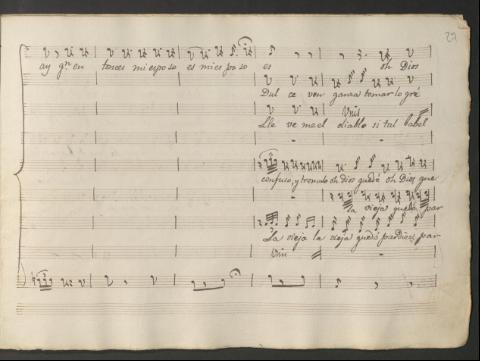 29
ay qn. en tonces mi esposo es mi es po so es oh Dios
Dul ce ven ganza tomar lo gré
Unis
Lle ve me el diablo si tal babel
confuso, y tremulo oh Dios quedé oh Dios que
la vieja quedó par
La vieja la vieja quedó pardiez par
Unis